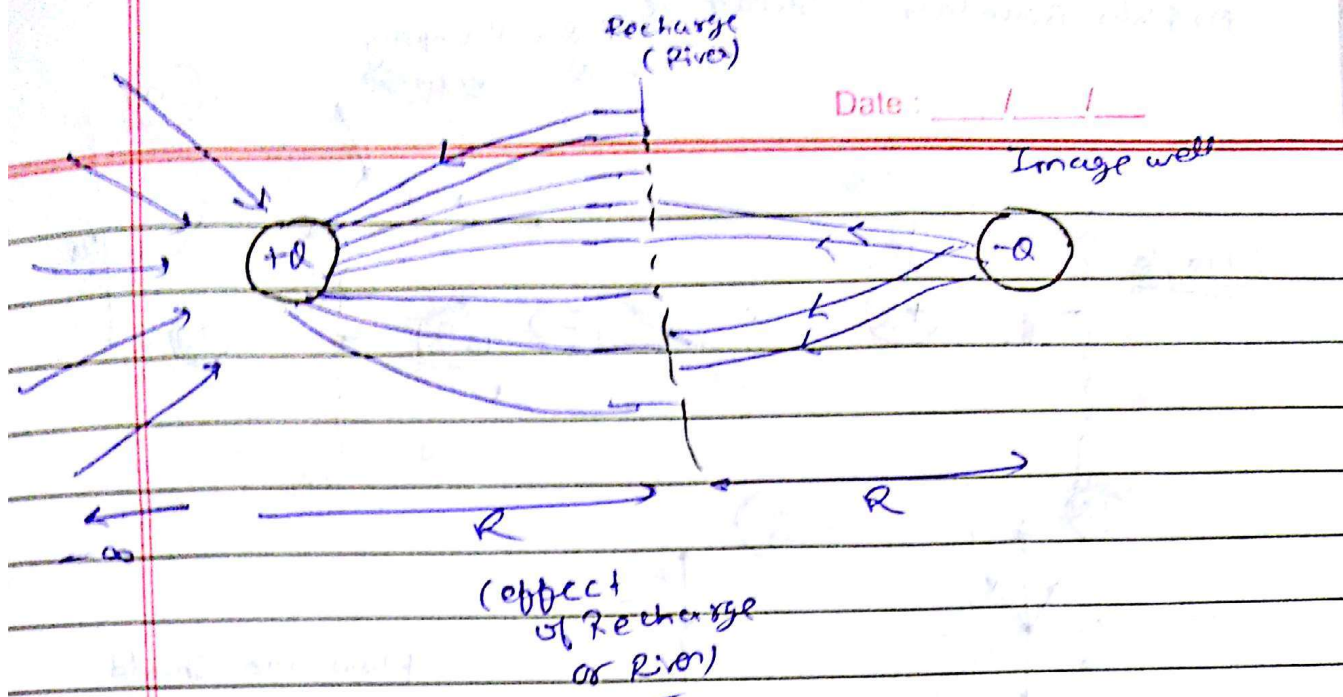 Recharge
(River)
Date : __/__/__
Image well
+Q
-Q
R
R
- ∞
(effect
of Recharge
or River)